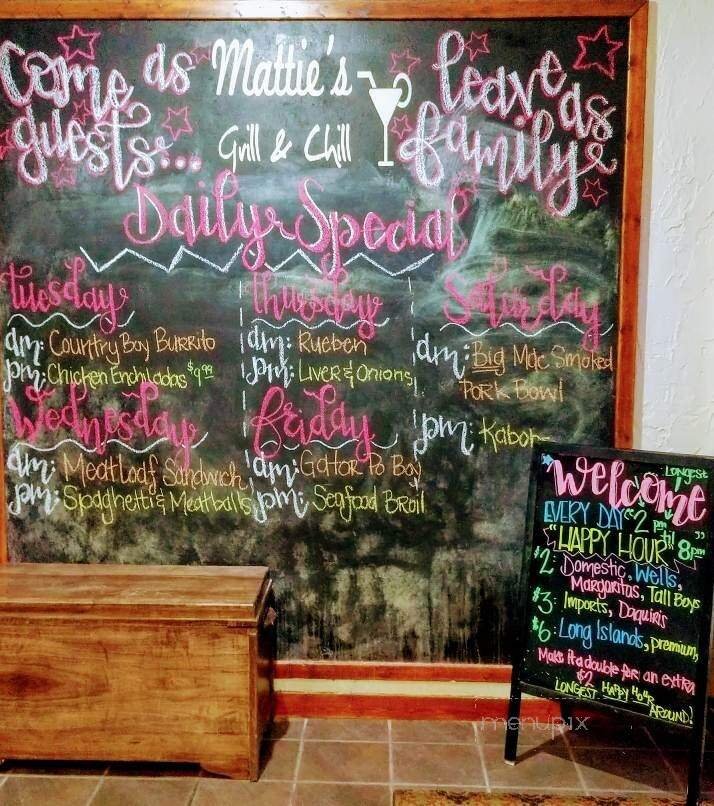 Come as
guests...
Mattie's
Grill & Chill
leave as
family
Daily Special
Tuesday
am: Country Boy Burrito
pm: Chicken Enchiladas $9.99
Wednesday
am: Meatloaf Sandwich
pm: Spaghetti & Meatballs
Thursday
am: Rueben
pm: Liver & Onions
Friday
am: Gator Po Boy
pm: Seafood Broil
Saturday
am: Big Mac Smoked
Pork Bowl
pm: Kabobs
Longest
Welcome
EVERY DAY "2 pm til 8pm"
"HAPPY HOUR"
$2: Domestic, Wells,
Margaritas, Tall Boys
$3: Imports, Daquiris
$6: Long Islands, premium,
Make it a double for an extra
$2
LONGEST HAPPY HOUR
AROUND!
menupix